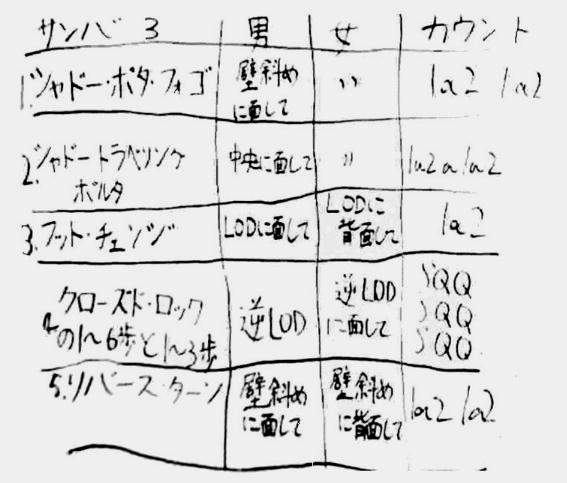 サンバ 3 男 女 カウント
1.シャドー・ボタ・フォゴ 壁斜め 〃 1a2 1a2
に面して
2.シャドートラベリング 中央に面して 〃 1a2a1a2
ボルタ
3.フット・チェンジ LODに面して LODに 1a2
背面して
クローズド・ロック 逆LOD 逆LOD SQQ
4.の1〜6歩と1〜3歩 に面して SQQ
SQQ
5.リバース・ターン 壁斜め 壁斜め 1a2 1a2
に面して に背面して